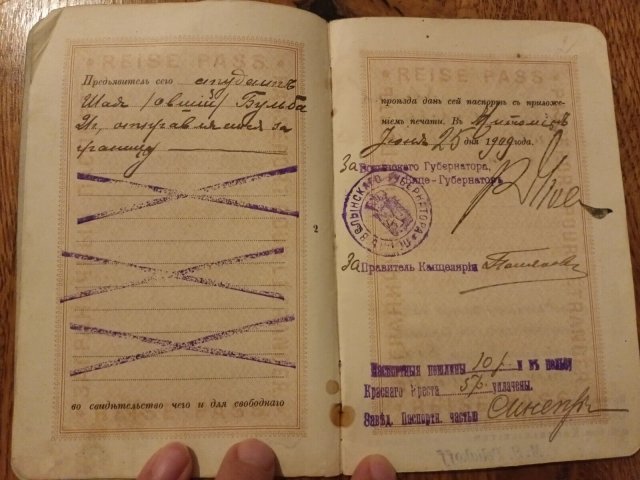 REISE PASS
Предъявитель сего студентъ
Шая Овшій Бульба
21 г., отправляется за
границу
2
во свидѣтельство чего и для свободнаго
REISE PASS
проѣзда данъ сей паспортъ съ приложе-
ніемъ печати. Въ Житомірѣ
Іюня 25 дня 1909 года.
За Волынскаго Губернатора,
Вице-Губернаторъ
ВОЛЫНСКАГО ГУБЕРНАТОРА
За Правитель Канцеляріи
Паспортныя пошлины 10 р. и въ пользу
Краснаго Креста 5 р. уплачены.
Завѣд. Паспортн. частью